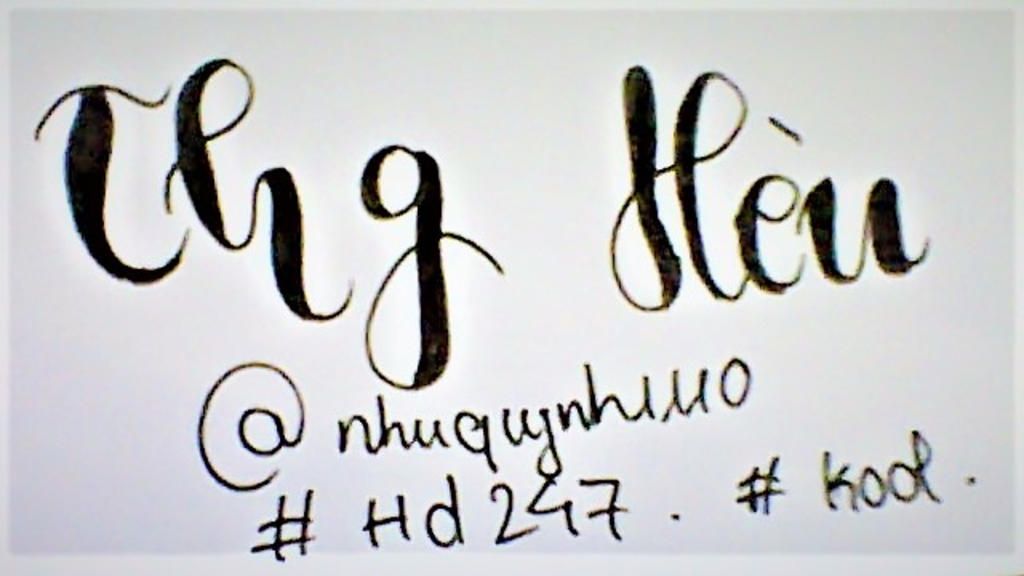 Thg Hèu
@nhuquynh1110
# Hd 247 . # Kool .